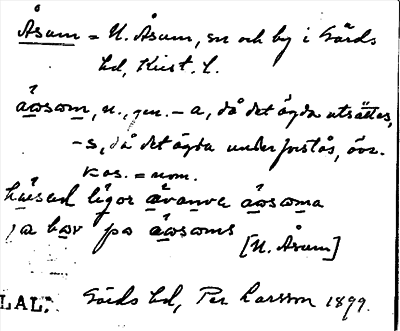 Åsum = N. Åsum, sn och by i Gärds
hd, Krist. l.
åosom, n., gen. – a, då det ägda utsättes,
– s, då det ägda underförstås, övr.
kas. = nom.
håised ligor åvanva åosoma
ja bor på åosoms
[N. Åsum]
LAL. Gärds hd, Per Larsson 1899.